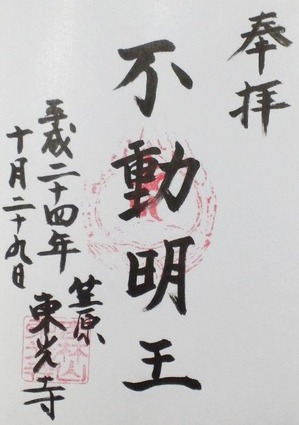 奉拝
不動明王
平成二十四年
十月二十九日
笠原
東光寺